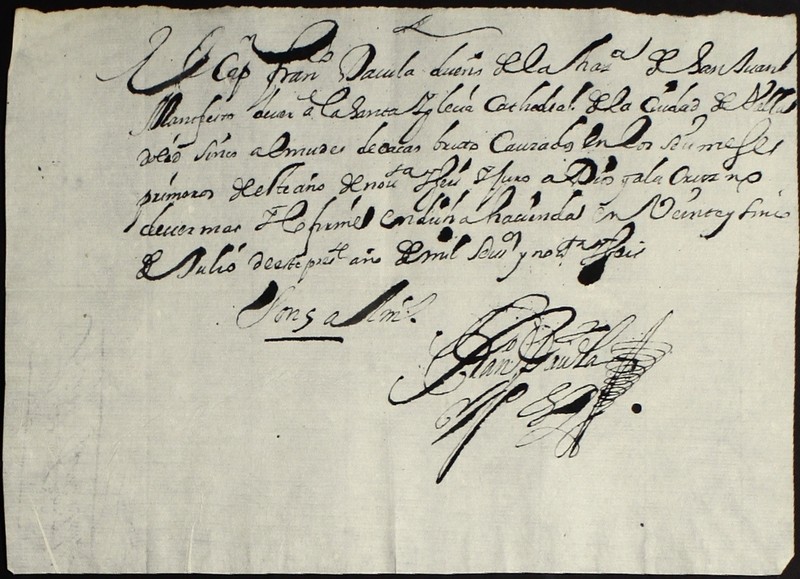 El Capn Franco Davila dueño de la hazda de San Juan
Manifiesto dever a la Santa Yglecia Cathedral de la Ciudad de Valla
dolid sinco almudes de cacao bruto Causados en los seis meses
primeros deste año de novta y seis y juro a Dios y a la Cruz no
dever mas y lo firme en dicha hacienda en Veinte y sinco
de Julio de este preste año de mil seisos y novta y seis
Son 5 almes
Franco Davila